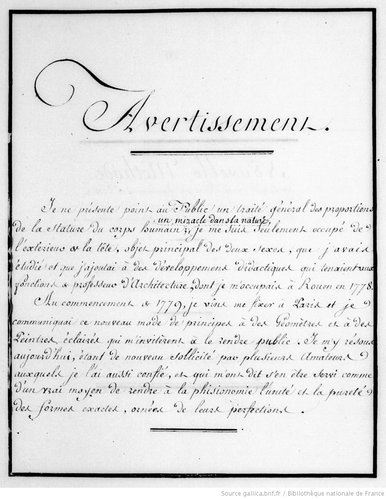 Avertissement.
Je ne présente point au Public un traité général des proportions
un miracle dans la nature
de la stature du corps humain, je me suis seulement occupé de
l'extérieur de la tête, objet principal des deux sexes, que j'avais
étudié et que j'ajoutai à des développemens Didactiques qui tenaient aux
fonctions de professeur d'Architecture dont je m'occupais à Rouen en 1778.
Au commencement de 1779, je vins me fixer à Paris et je
communiquai ce nouveau mode de principes à des Géomètres et à des
Peintres éclairés qui m'invitèrent à le rendre public. Je m'y résous
aujourd'hui, étant de nouveau sollicité par plusieurs Amateurs
auxquels je l'ai aussi confié, et qui m'ont dit s'en être servi comme
d'un vrai moyen de rendre à la phisionomie l'unité et la pureté
des formes exactes, ornées de leurs perfections.
Source gallica.bnf.fr / Bibliothèque nationale de France